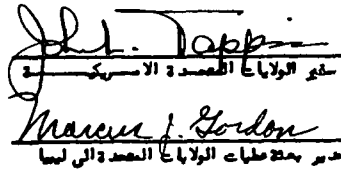 John L. Tappin
سفير الولايات المتحدة الامريكية
Marcus J. Gordon
مدير بعثة عمليات الولايات المتحدة الى ليبيا